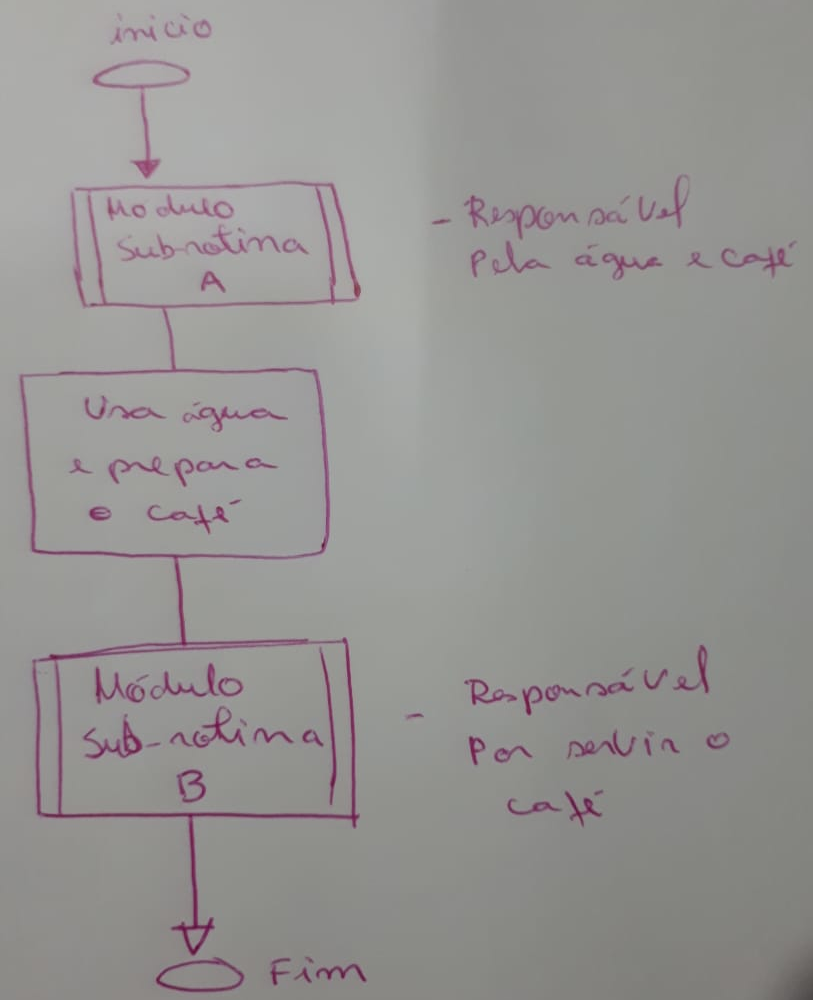 inicio
Módulo
Subrotina
A
- Responsável
pela água e café
Usa água
e prepara
o café
Módulo
Sub-rotina
B
- Responsável
Por servir o
café
Fim